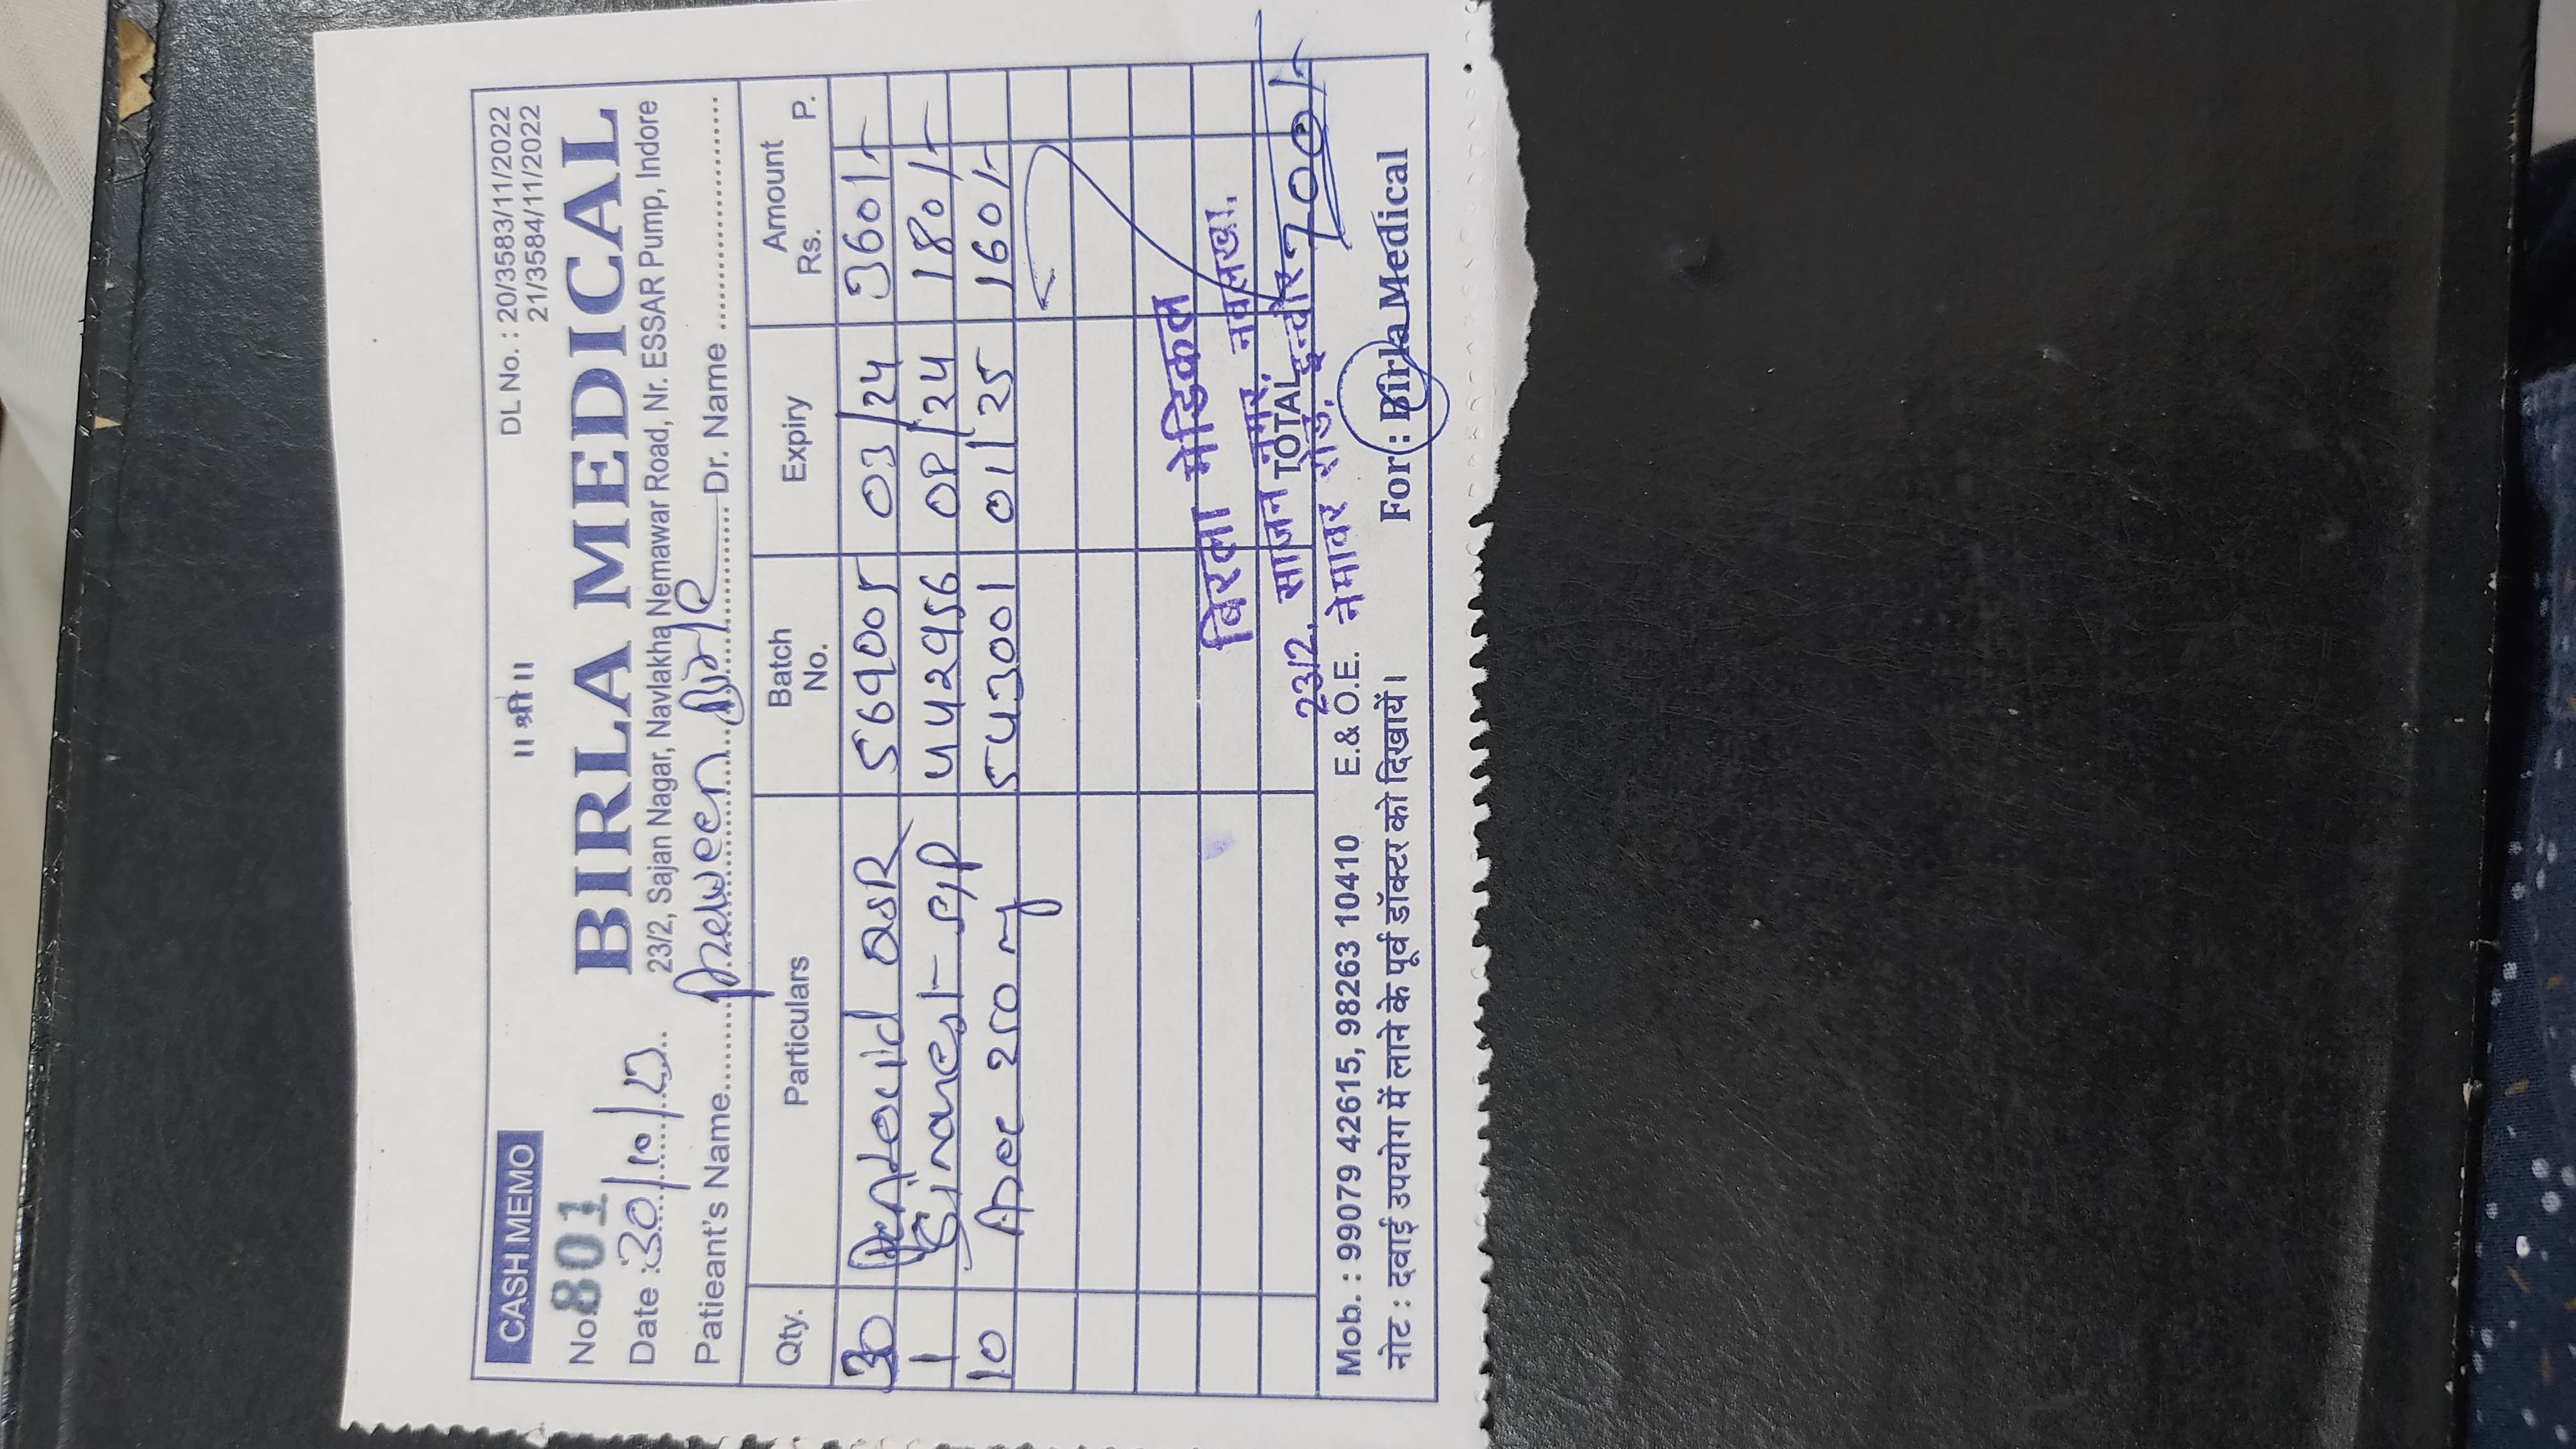 CASH MEMO
|| श्री ||
DL No. : 20/3583/11/2022
21/3584/11/2022
No. 801
BIRLA MEDICAL
Date : 30/10/23
23/2, Sajan Nagar, Navlakha Nemawar Road, Nr. ESSAR Pump, Indore
Patieant's Name Praween Birla Dr. Name
Qty. Particulars Batch No. Expiry Amount Rs. P.
30 Pentocid DSR 569005 03/24 360/-
1 Sinarest S/P 442956 08/24 180/-
10 250 mg 543001 01/25 160/-
बिरला मेडिकल
23/2, साजन नगर, नवलखा,
नेमावर रोड, इन्दौर
TOTAL 700/-
Mob. : 99079 42615, 98263 10410 E.& O.E.
नोट : दवाई उपयोग में लाने के पूर्व डॉक्टर को दिखायें।
For : Birla Medical